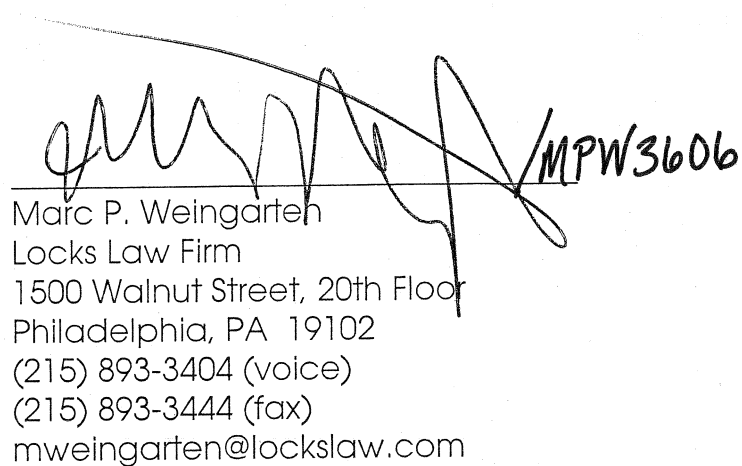 /MPW3606
Marc P. Weingarten
Locks Law Firm
1500 Walnut Street, 20th Floor
Philadelphia, PA  19102
(215) 893-3404 (voice)
(215) 893-3444 (fax)
mweingarten@lockslaw.com